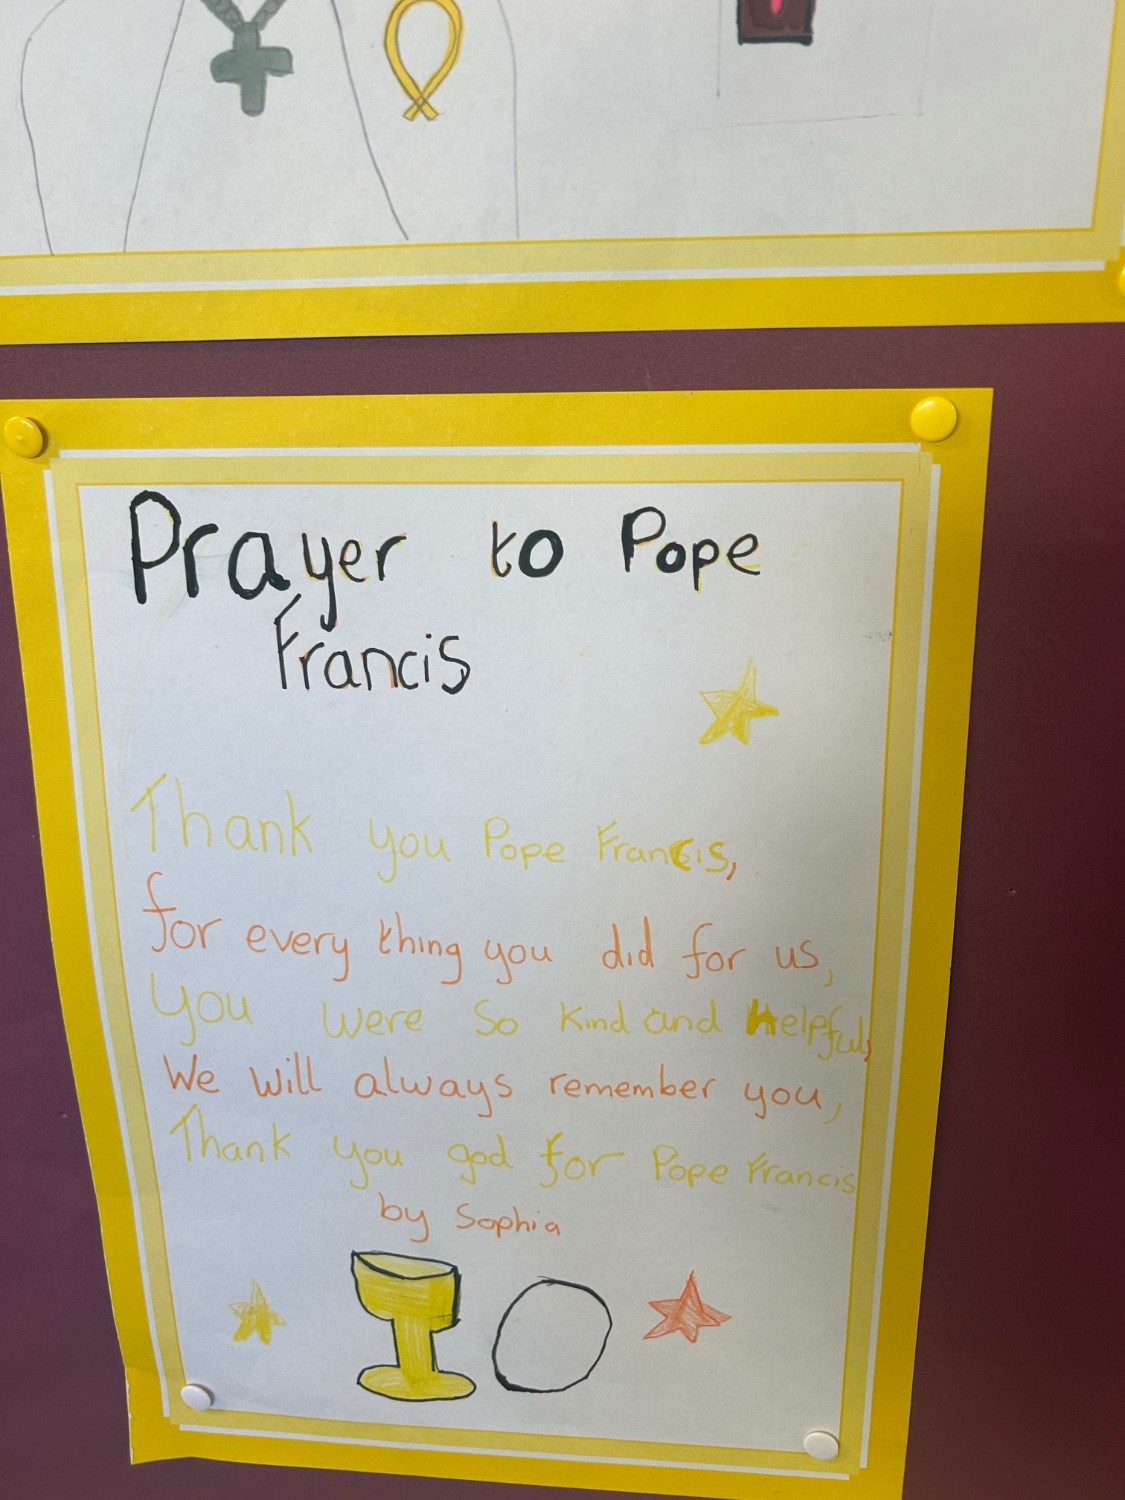 Prayer to Pope
Francis
Thank you Pope Francis,
for every thing you did for us,
You were so kind and helpful,
We will always remember you,
Thank you god for Pope Francis
by Sophia